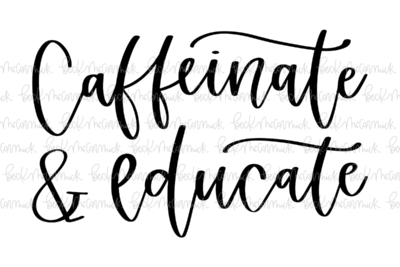 Caffeinate
& educate